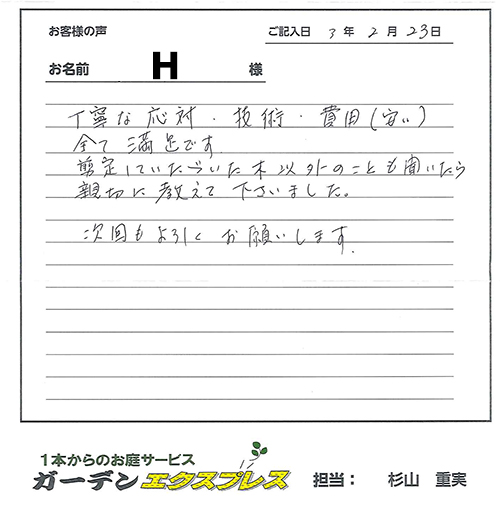 お客様の声
ご記入日 3年2月23日
お名前 H 様
丁寧な応対・技術・費用(安い)
全て満足です
剪定していただいた木以外のことも聞いたら
親切に教えて下さいました。
次回もよろしくお願いします.
1本からのお庭サービス
ガーデンエクスプレス 担当： 杉山 重実